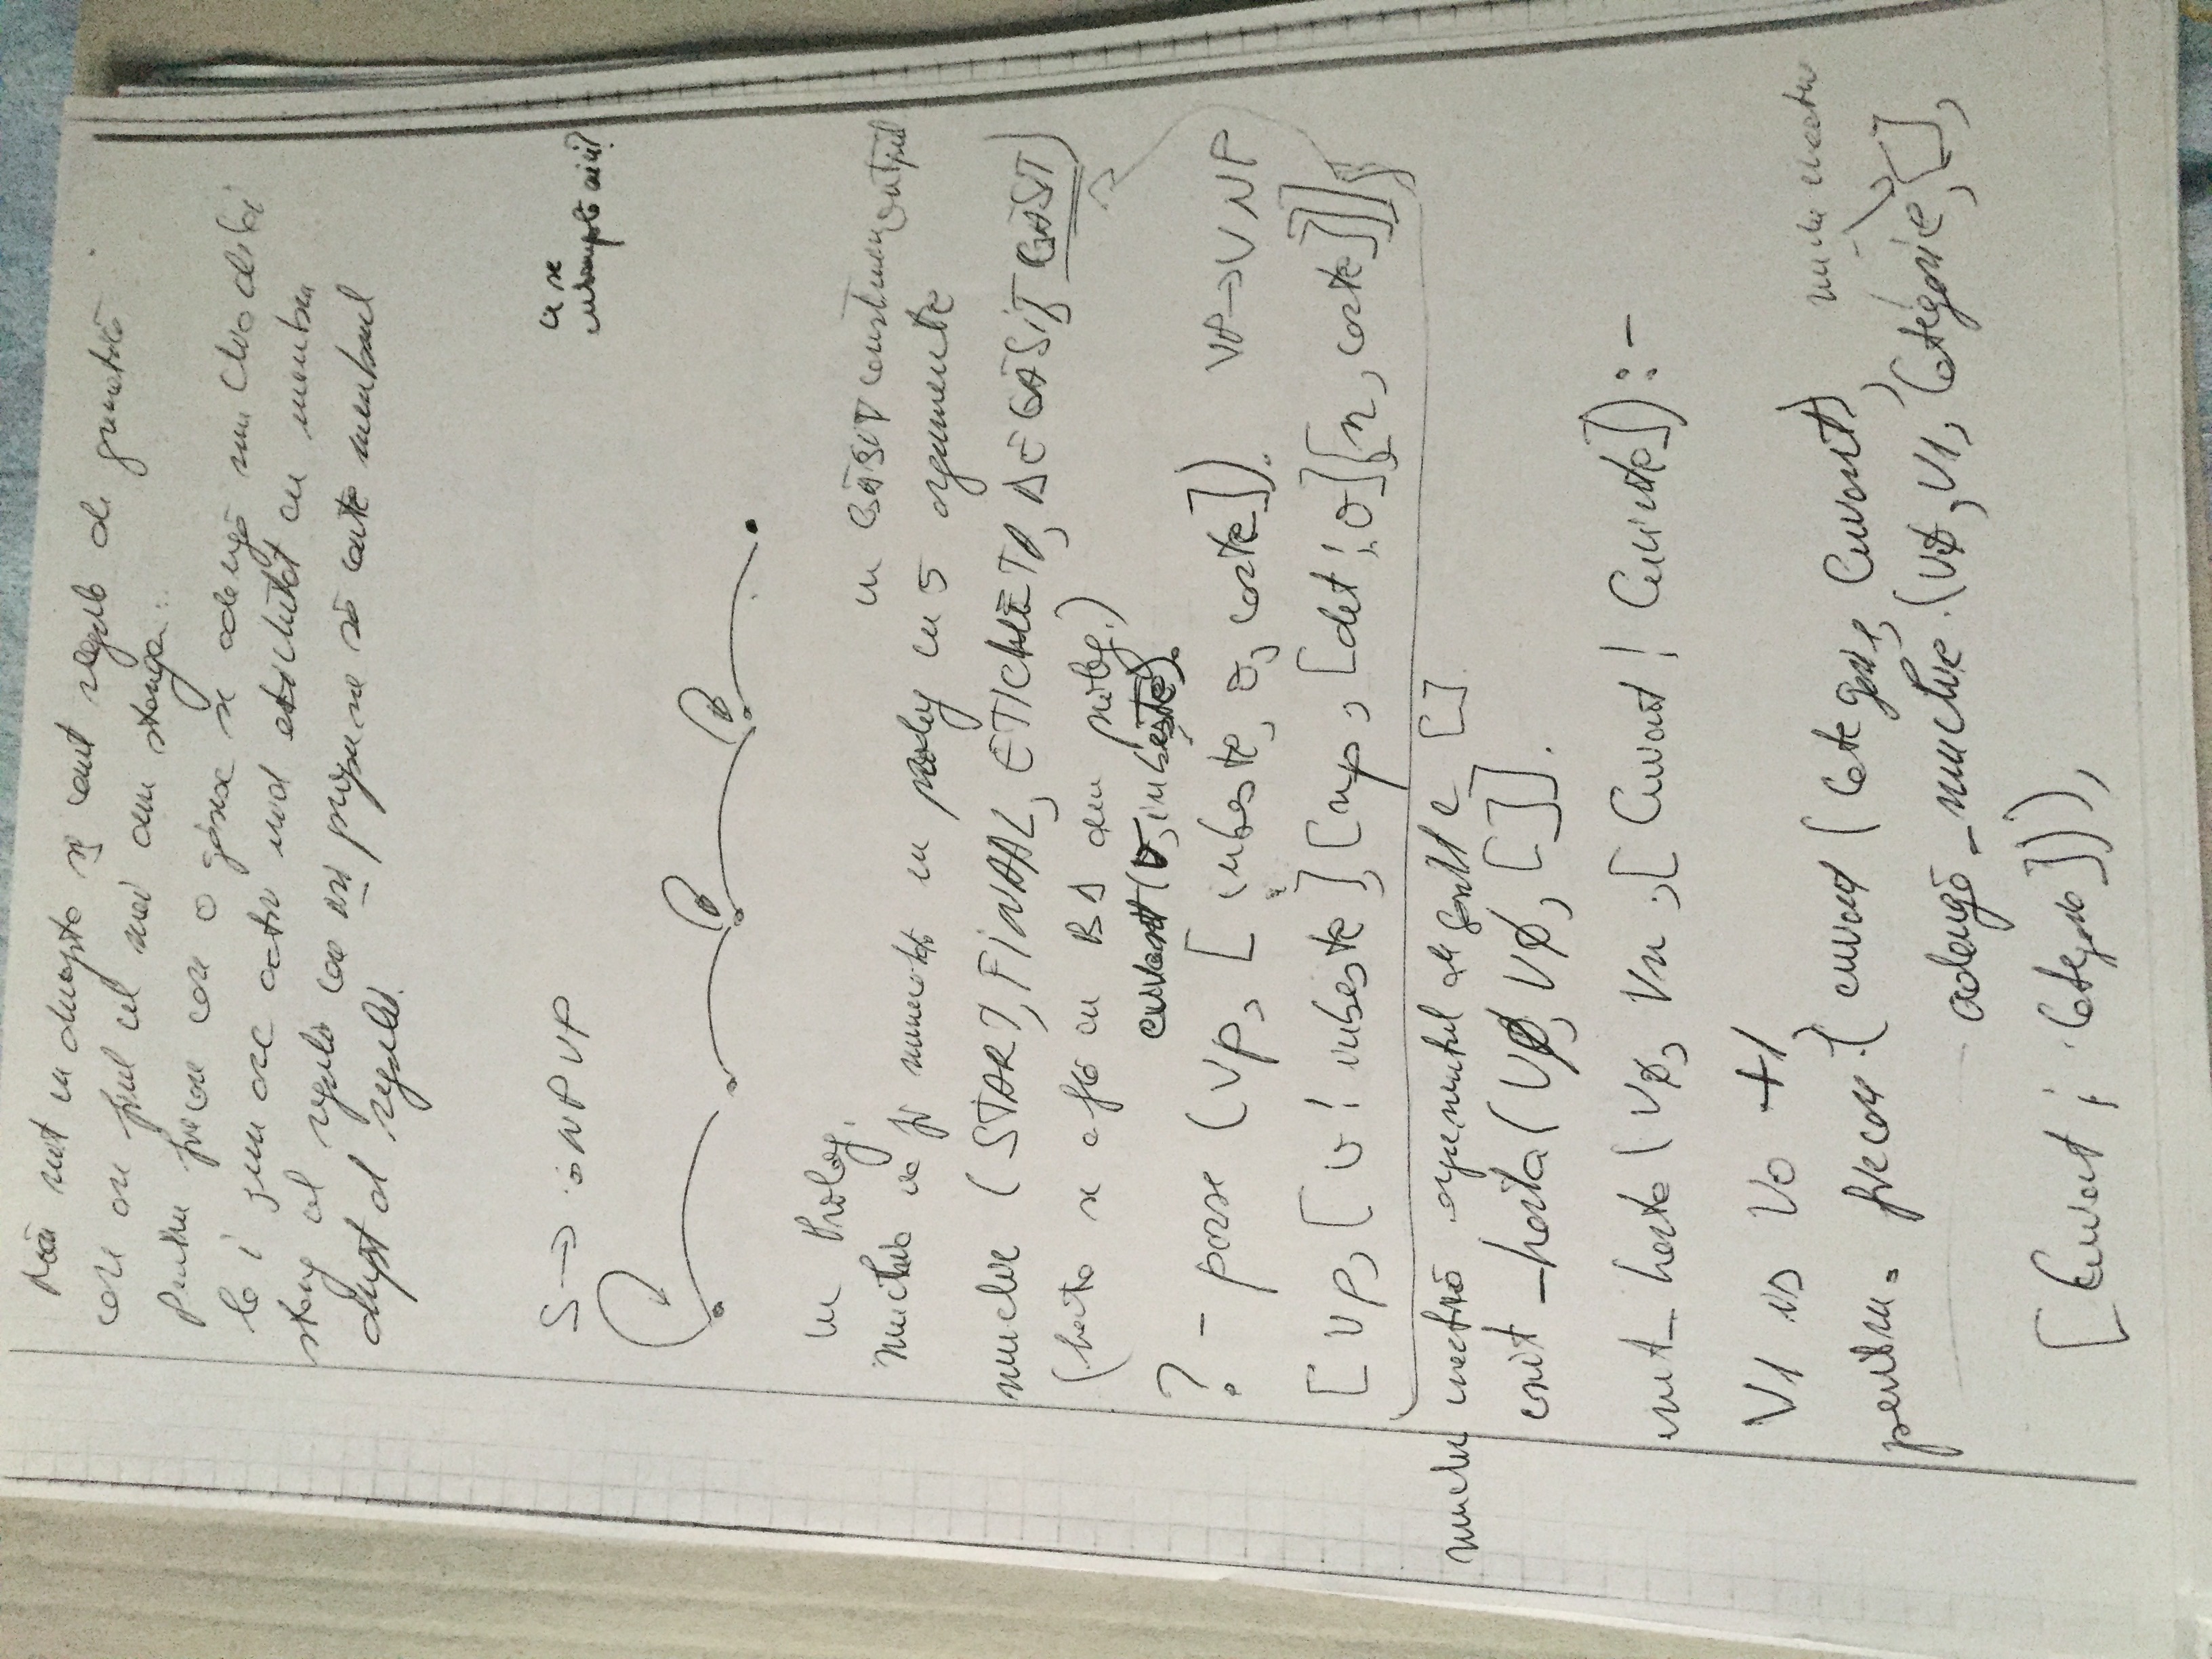 Mă uit în dreapta și caut reguli de gramatică
care are fiul cel mai din stânga.
Pentru fiecare care o găsesc se adaugă muchia de la i
la i arc activ nod etichetat cu membru
stâng al regulii care își propune să caute membrul
drept al regulii.
S → . NP VP
ce se
întâmplă aici?
in Prolog.
in GĂSIT construim outputul
muchia va fi numerotată in prolog cu 5 argumente
muchie (START, FINAAL, ETICHETĂ, DE GĂSIT, GĂSIT)
(harta se află in BD din prolog.)
cuvant(v, iubește).
? - parse (vp, [iubeste, o, carte]). VP → V NP
[vp, [v ! iubeste], [np, [det ! o][n, carte]]]
muchie inactivă argumentul de găsit e [].
init_harta(VØ, VØ, []].
init_harta(VØ, Vn, [Cuvant ! Cuvinte]) :-
V1 is V0 +1,
pentru. fiecare (cuvant (Categorie, Cuvant), muchie inactiva
adaugă_muchie (VØ, V1, Categorie, [],
[Cuvant ; Categorie])),